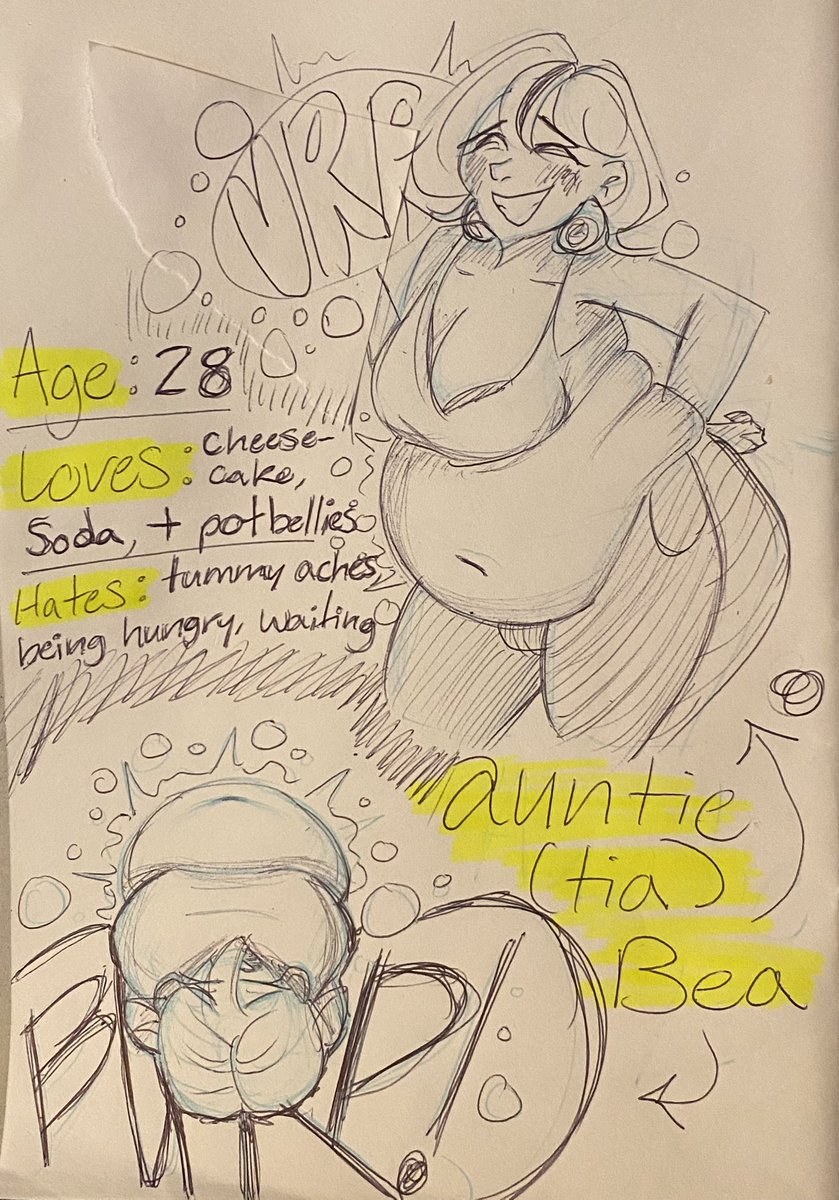 URP
Age: 28
Loves: cheese-
cake,
Soda, + potbellies
Hates: tummy aches,
being hungry, waiting
auntie
(tia)
Bea
BURP!